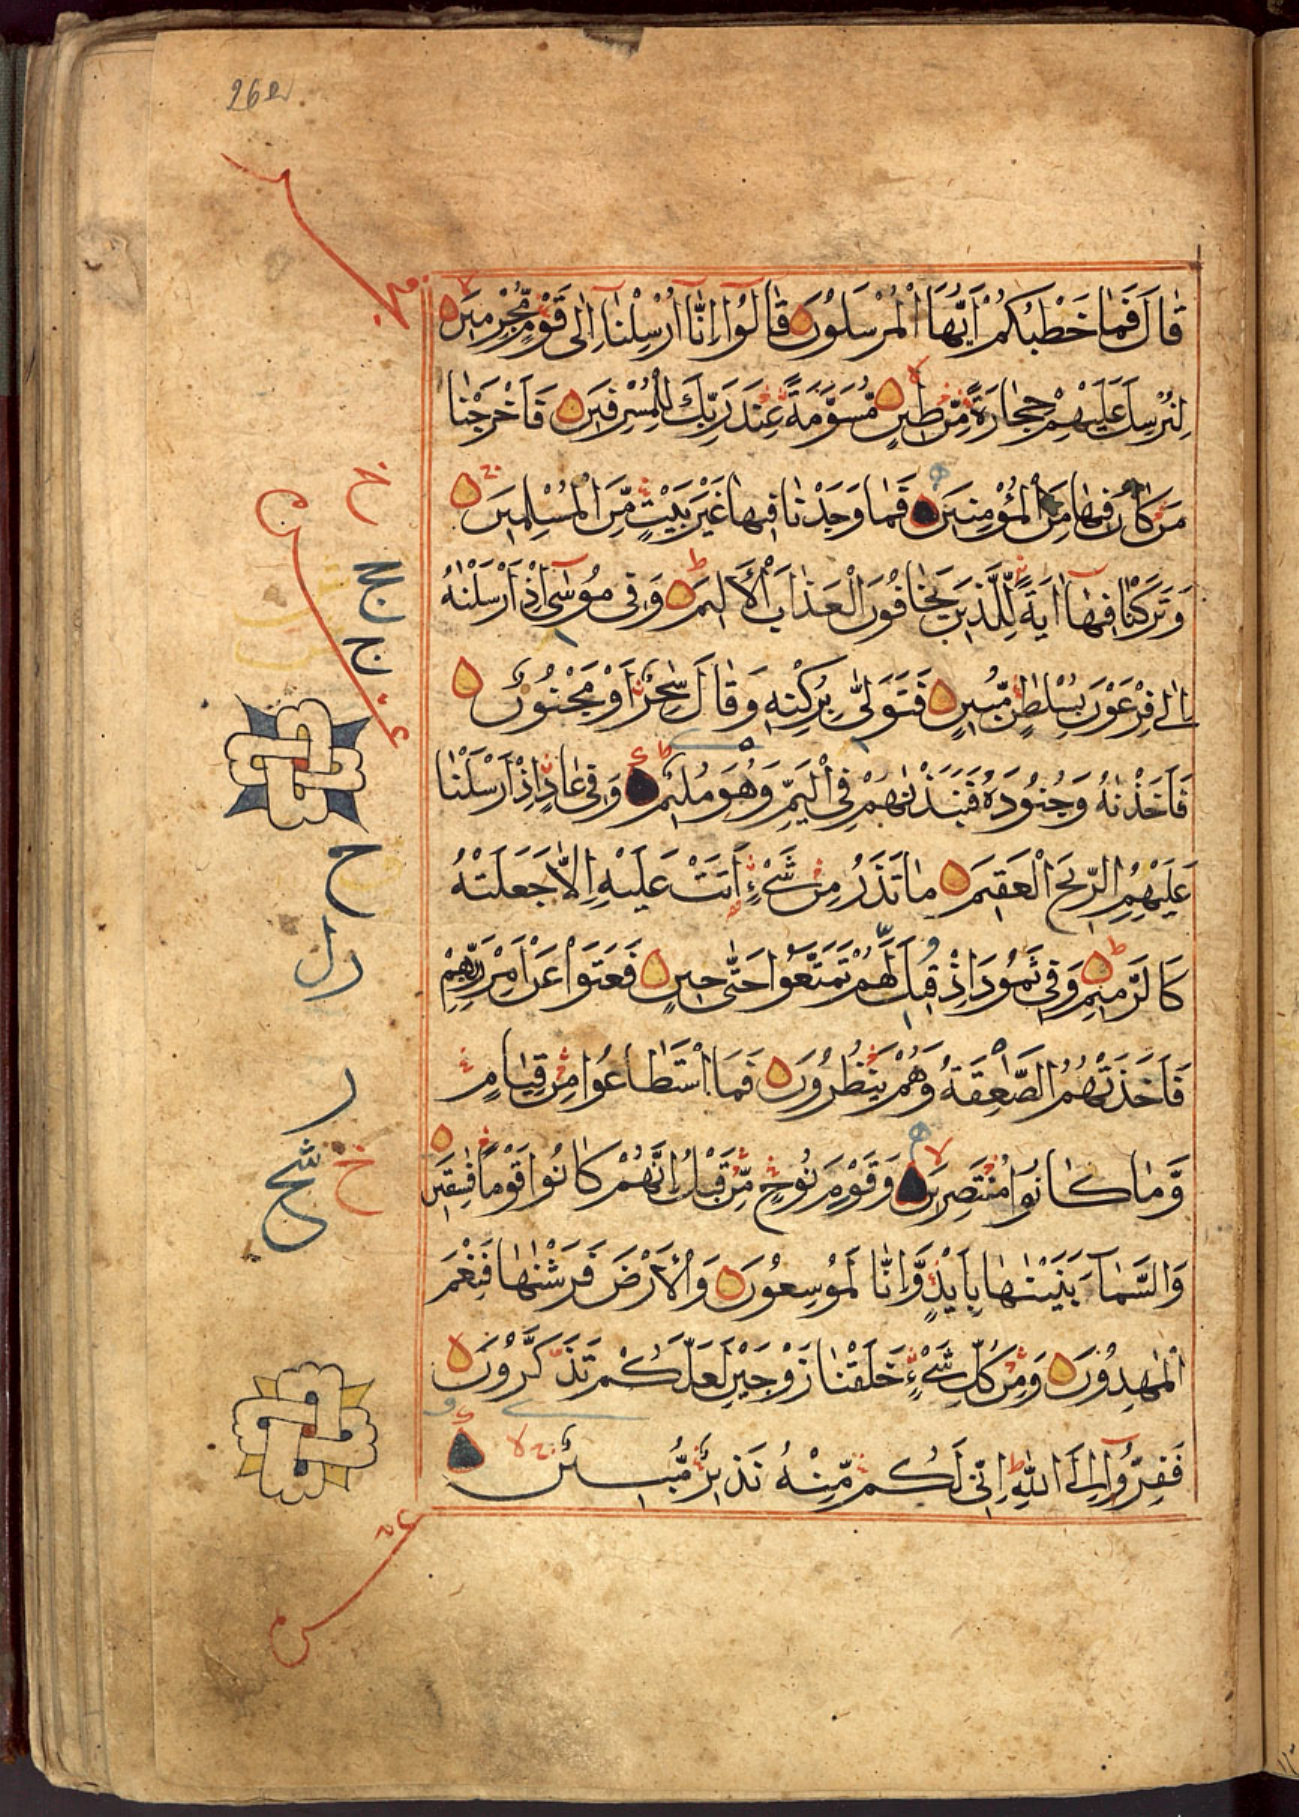 قَالَ فَمَا خَطْبُكُمْ اَيُّهَا الْمُرْسَلُوْنَ قَالُوْٓا اِنَّٓا اُرْسِلْنَٓا اِلٰى قَوْمٍ مُّجْرِمِيْنَ
لِنُرْسِلَ عَلَيْهِمْ حِجَارَةً مِّنْ طِيْنٍ مُّسَوَّمَةً عِنْدَ رَبِّكَ لِلْمُسْرِفِيْنَ فَاَخْرَجْنَا
مَنْ كَانَ فِيْهَا مِنَ الْمُؤْمِنِيْنَ فَمَا وَجَدْنَا فِيْهَا غَيْرَ بَيْتٍ مِّنَ الْمُسْلِمِيْنَ
وَتَرَكْنَا فِيْهَٓا اٰيَةً لِّلَّذِيْنَ يَخَافُوْنَ الْعَذَابَ الْاَلِيْمَ وَفِىْ مُوْسٰٓى اِذْ اَرْسَلْنٰهُ
اِلٰى فِرْعَوْنَ بِسُلْطٰنٍ مُّبِيْنٍ فَتَوَلّٰى بِرُكْنِهٖ وَقَالَ سٰحِرٌ اَوْ مَجْنُوْنٌ
فَاَخَذْنٰهُ وَجُنُوْدَهٗ فَنَبَذْنٰهُمْ فِى الْيَمِّ وَهُوَ مُلِيْمٌ وَفِىْ عَادٍ اِذْ اَرْسَلْنَا
عَلَيْهِمُ الرِّيْحَ الْعَقِيْمَ مَا تَذَرُ مِنْ شَىْءٍ اَتَتْ عَلَيْهِ اِلَّا جَعَلَتْهُ
كَالرَّمِيْمِ وَفِىْ ثَمُوْدَ اِذْ قِيْلَ لَهُمْ تَمَتَّعُوْا حَتّٰى حِيْنٍ فَعَتَوْا عَنْ اَمْرِ رَبِّهِمْ
فَاَخَذَتْهُمُ الصّٰعِقَةُ وَهُمْ يَنْظُرُوْنَ فَمَا اسْتَطَاعُوْا مِنْ قِيَامٍ
وَّمَا كَانُوْا مُنْتَصِرِيْنَ وَقَوْمَ نُوْحٍ مِّنْ قَبْلُ اِنَّهُمْ كَانُوْا قَوْمًا فٰسِقِيْنَ
وَالسَّمَآءَ بَنَيْنٰهَا بِاَيْىدٍ وَّاِنَّا لَمُوْسِعُوْنَ وَالْاَرْضَ فَرَشْنٰهَا فَنِعْمَ
الْمٰهِدُوْنَ وَمِنْ كُلِّ شَىْءٍ خَلَقْنَا زَوْجَيْنِ لَعَلَّكُمْ تَذَكَّرُوْنَ
فَفِرُّوْٓا اِلَى اللّٰهِ اِنِّىْ لَكُمْ مِّنْهُ نَذِيْرٌ مُّبِيْنٌ